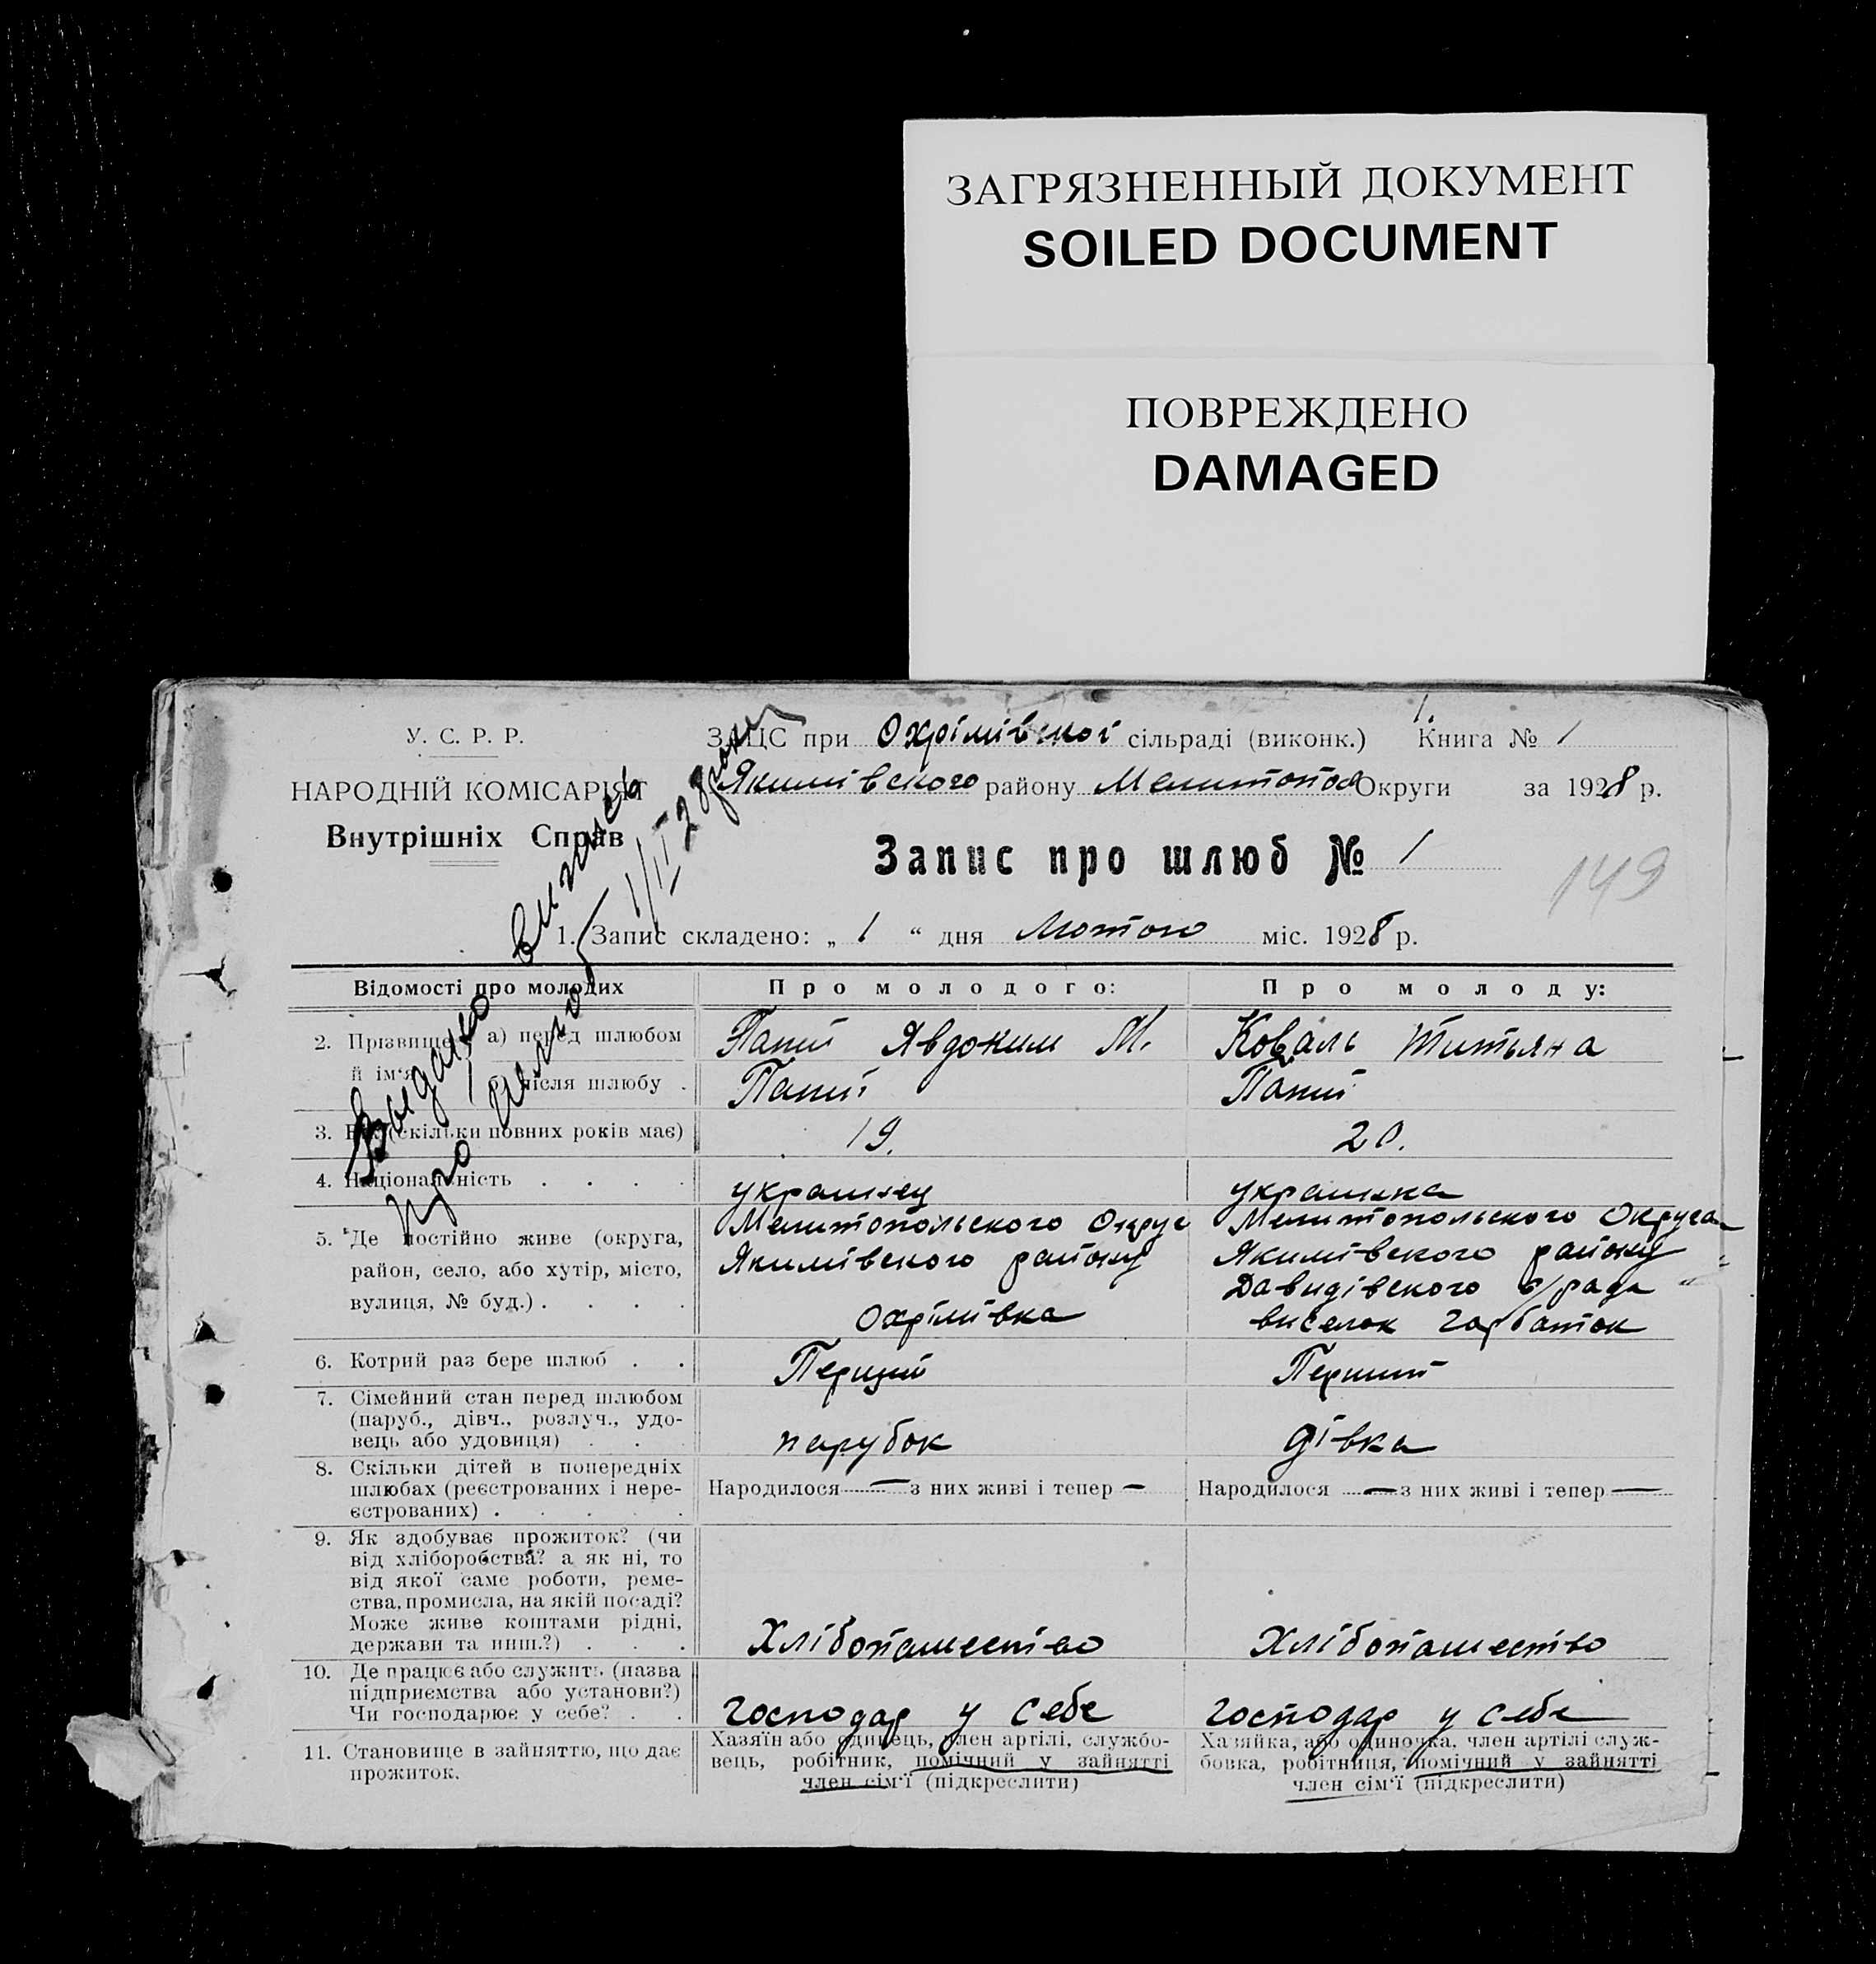 ЗАГРЯЗНЕННЫЙ ДОКУМЕНТ
SOILED DOCUMENT
ПОВРЕЖДЕНО
DAMAGED
У. С. Р. Р.
НАРОДНІЙ КОМІСАРІЯТ
Внутрішніх Справ
ЗАЦС при Охрімівської сільраді (виконк.) Книга № 1
Якимівского району Мелитопол Округи за 1928 р.
Запис про шлюб № 1
149
1. Запис складено: „ 1 “ дня Лютого міс. 1928 р.
Видано виписъ
про шлюб 1/II 28 року
Відомості про молодих Про молодого: Про молоду:
2. Прізвище й ім'я а) перед шлюбом Папій Явдоким М. Коваль Титьяна
після шлюбу . Папій Папій
3. Вік (скільки повних років має) 19. 20.
4. Національність . . . . украинец украинка
5. Де постійно живе (округа, район, село, або хутір, місто, вулиця, № буд.) . . . .
Мелитопольского Округ
Якимівского району
Охрімівка
Мелитопольского Округа
Якимівского району
Давидівского с/рада
виселок Горбаток
6. Котрий раз бере шлюб . . Перщий Перший
7. Сімейний стан перед шлюбом
(паруб., дівч., розлуч., удо-
вець або удовиця) . . парубок дівка
8. Скільки дітей в попередніх
шлюбах (реєстрованих і нере-
єстрованих) . . . . .
Народилося — з них живі і тепер — Народилося — з них живі і тепер —
9. Як здобуває прожиток? (чи
від хліборобства? а як ні, то
від якої саме роботи, реме-
ства, промисла, на якій посаді?
Може живе коштами рідні,
держави та инш.?) . . . Хлібопашество Хлібопашество
10. Де працює або служить (назва
підприємства або установи?)
Чи господарює у себе? . . Господар у себе Господар у себе
11. Становище в зайняттю, що дає
прожиток.
Хазяїн або одинець, член артілі, службо-
вець, робітник, помічний у зайнятті
член сім'ї (підкреслити)
Хазяйка, або одиночка, член артілі служ-
бовка, робітниця, помічний у зайнятті
член сім'ї (підкреслити)